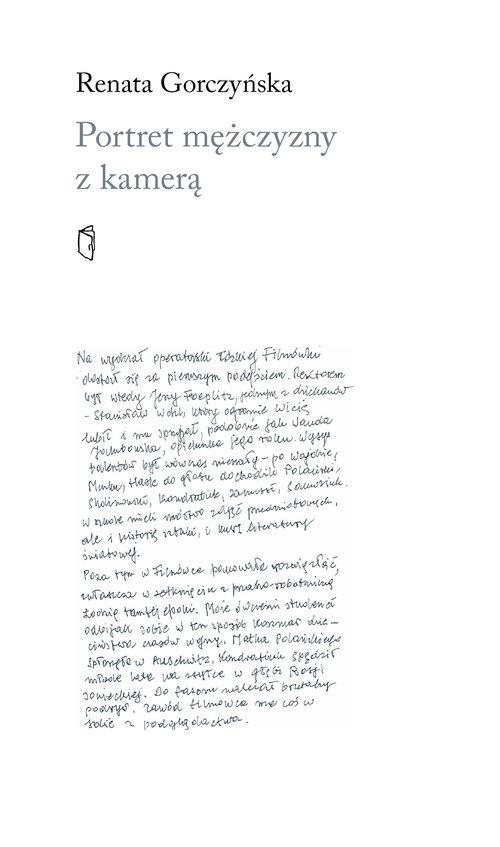 Renata Gorczyńska
Portret mężczyzny
z kamerą
Na wydział operatorski łódzkiej Filmówki
dostał się za pierwszym podejściem. Rektorem
był wtedy Jerzy Toeplitz, jednym z dziekanów
- Stanisław Wohl, który ogromnie Wicię
lubił i mu sprzyjał, podobnie jak Wanda
Jakubowska, opiekunka jego roku. Wysyp
talentów był wówczas niemały - po Wajdzie,
Munku, Hasie do głosu dochodzili Polański,
Skolimowski, Kondratiuk, Zanussi,
W szkole mieli mnóstwo zajęć przedmiotowych,
ale i historię sztuki, i kurs literatury
światowej.
Poza tym w Filmówce panowało rozwiązłość,
zwłaszcza w zetknięciu z prasko-robotniczą
Łodzią tamtej epoki. Może ówcześni studenci
odbijali sobie w ten sposób koszmar dzie-
ciństwa czasów wojny. Matka Polańskiego
spłonęła w Auschwitz, Kondratiuk spędził
młode lata na zsyłce w głębi Rosji
sowieckiej. Do tego materiał brutalny
podryw. Zawód filmowca ma coś w
sobie z podglądactwa.